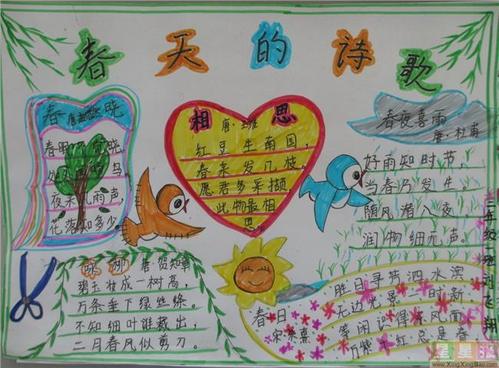 春天的诗歌
春晓
春眠不觉晓
处处闻啼鸟
夜来风雨声，
花落知多少
相思
唐·王维
红豆生南国，
春来发几枝，
愿君多采撷
此物最相
思
春夜喜雨
唐·杜甫
好雨知时节，
当春乃发生，
随风潜入夜
润物细无声。
咏柳 唐 贺知章
碧玉妆成一树高，
万条垂下绿丝绦。
不知细叶谁裁出，
二月春风似剪刀。
春日
宋 朱熹
胜日寻芳泗水滨
无边光景一时新，
等闲识得东风面
万紫千红总是春
星星派
www.XingXingBao.com